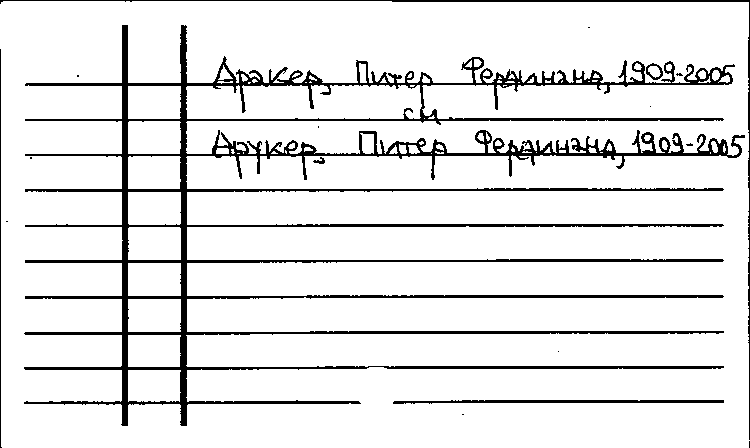 Дракер, Питер Фердинанд, 1909-2005
см.
Друкер, Питер Фердинанд, 1909-2005